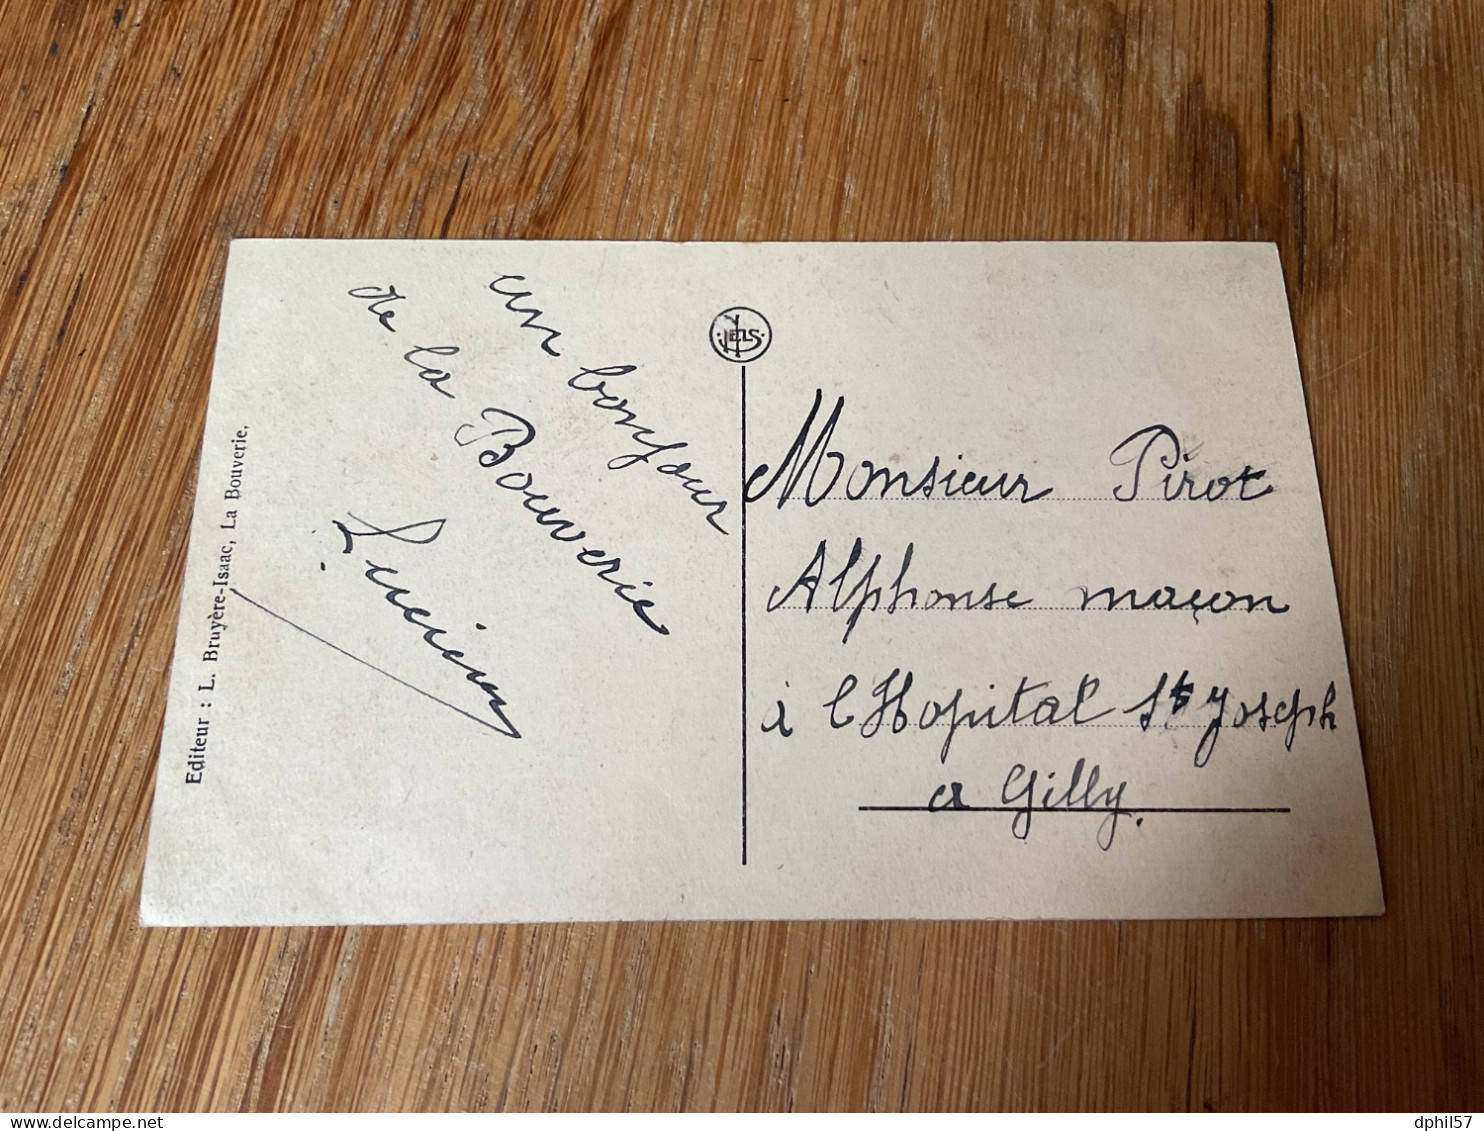 un bonjour
de la Bouverie
Lucien
Editeur : L. Bruyère-Isaac, La Bouverie.
NELS
Monsieur Pirot
Alphonse maçon
à l'Hopital St Joseph
a Gilly.
dphil57